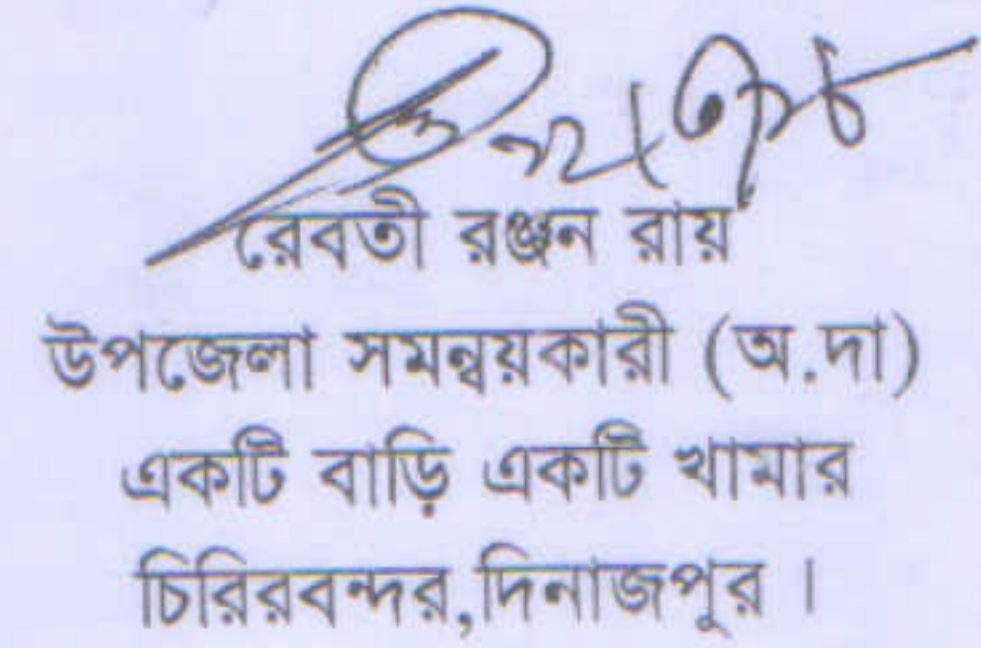 রেবতী রঞ্জন রায়
উপজেলা সমন্বয়কারী (অ.দা)
একটি বাড়ি একটি খামার
চিরিরবন্দর,দিনাজপুর ।